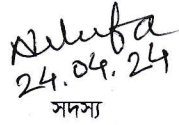 Nilufa
24.04.24
সদস্য